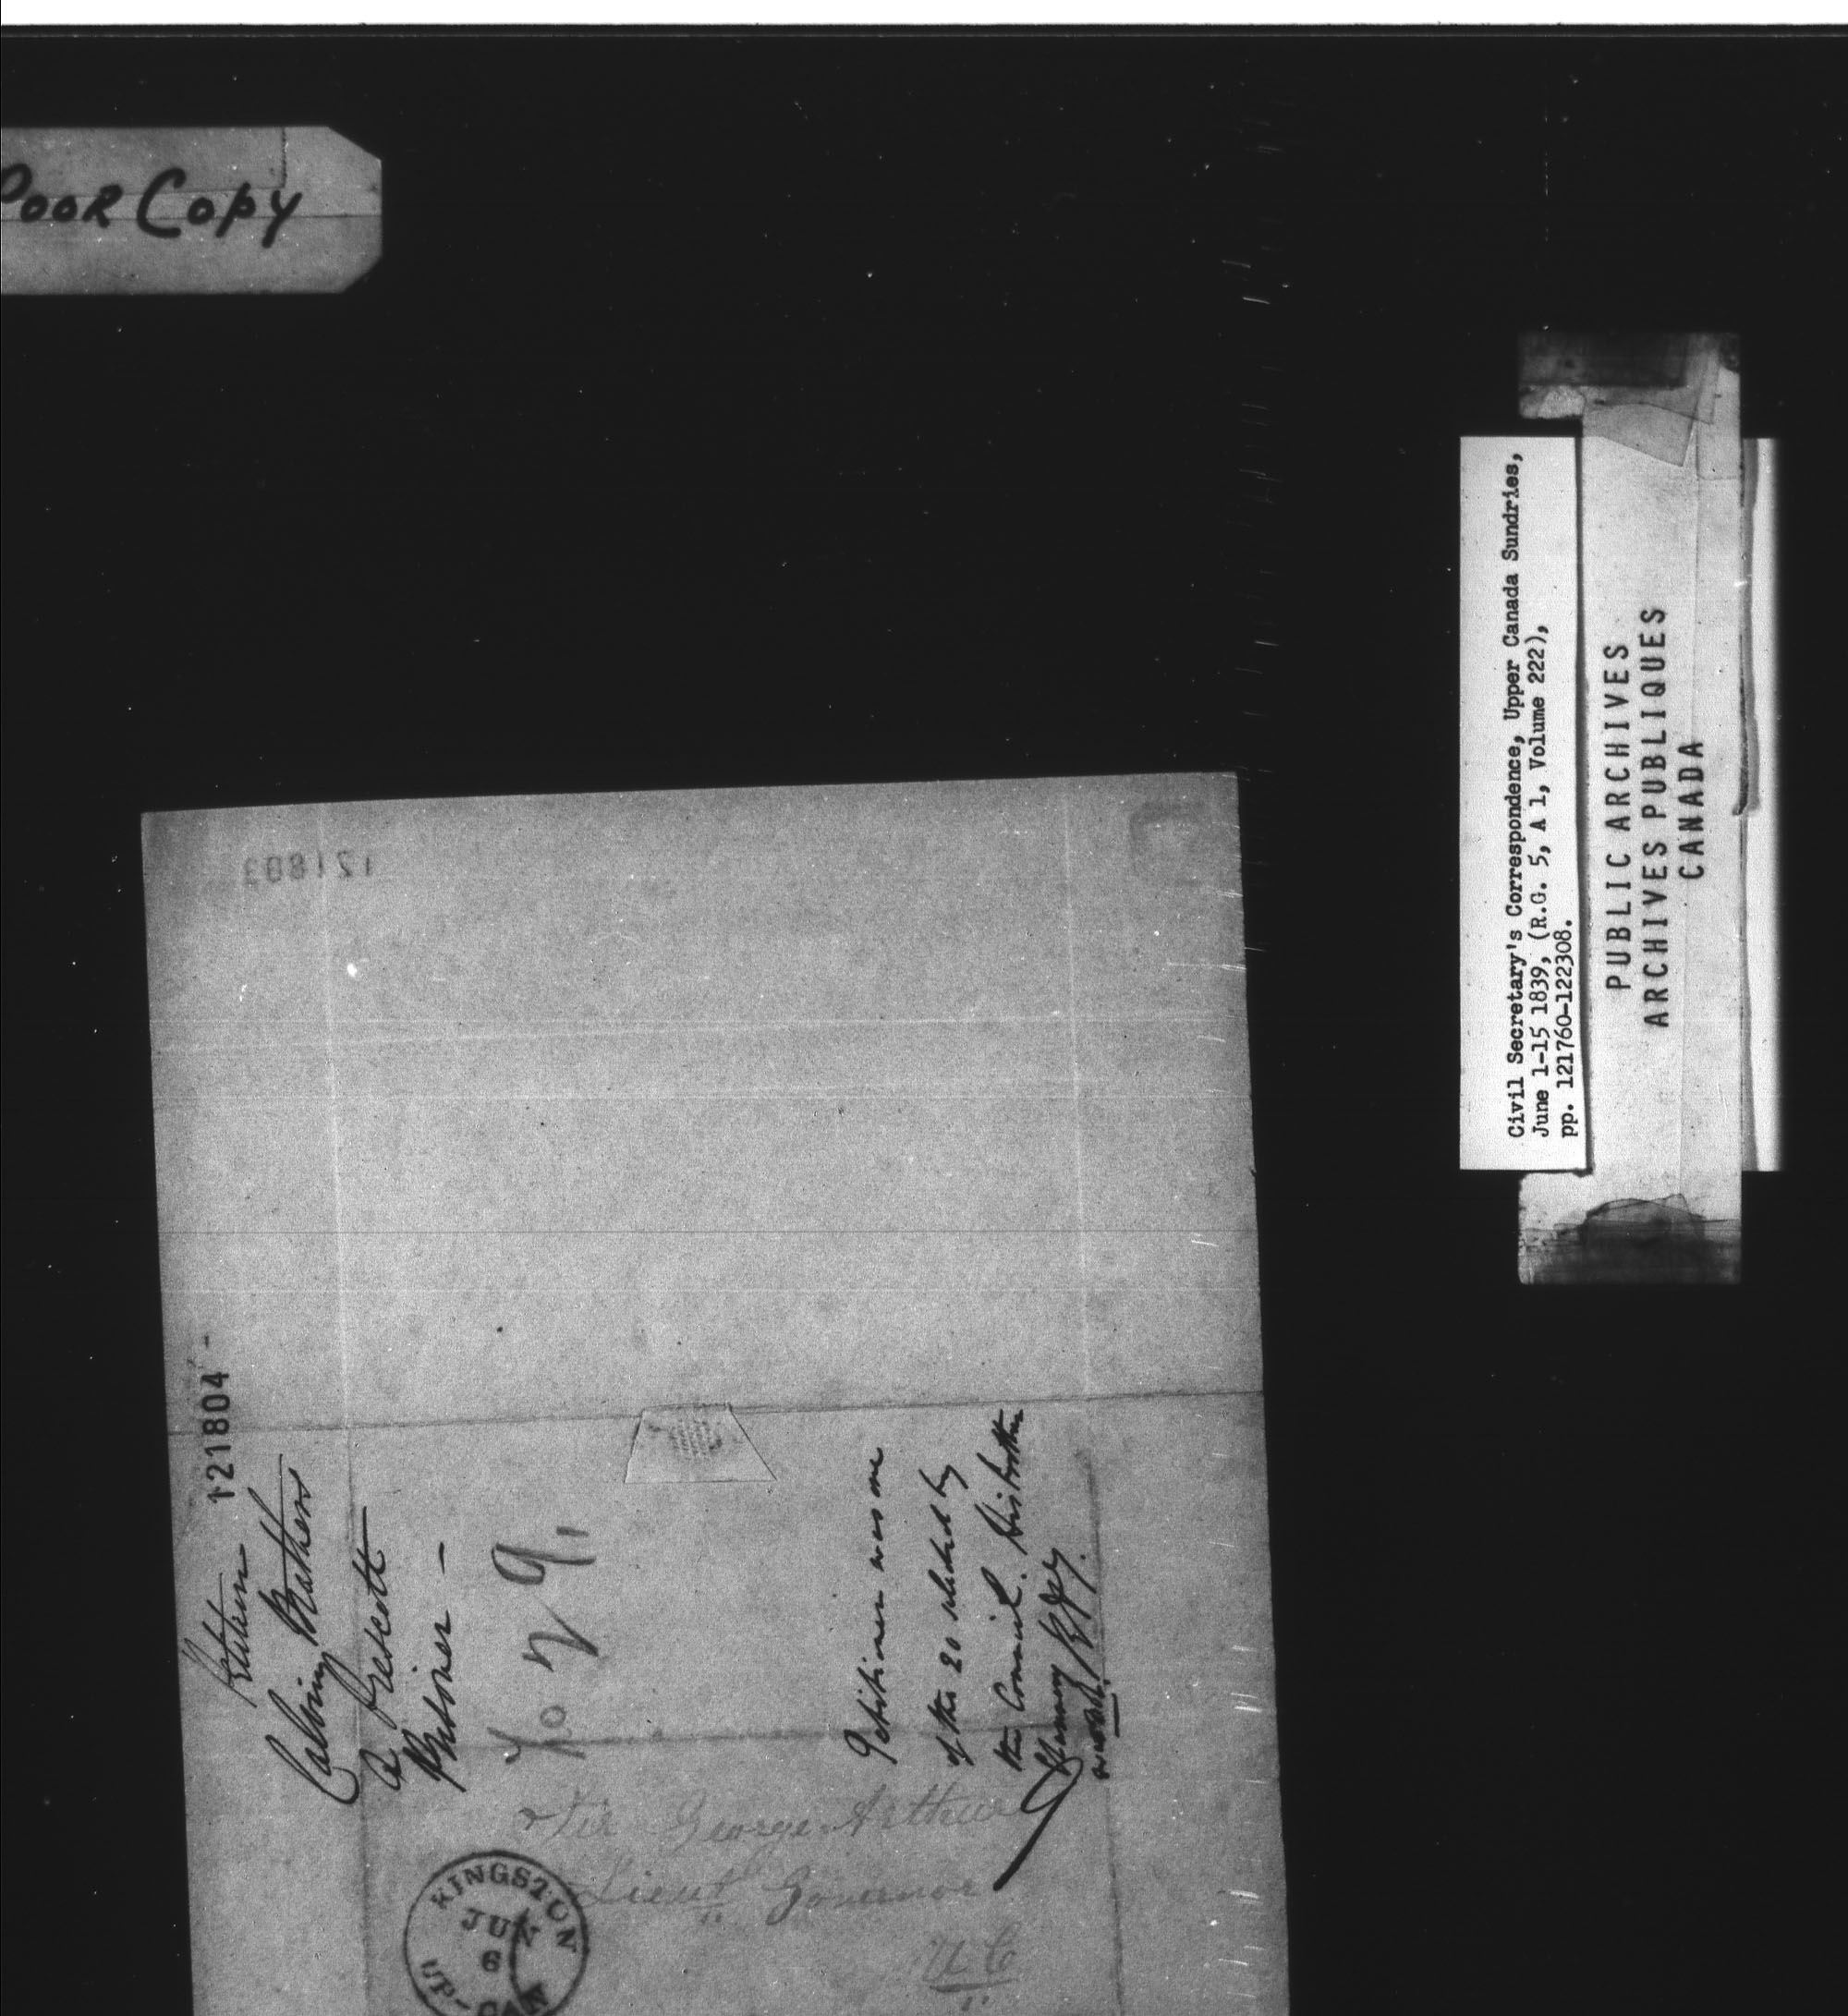 Poor Copy
Civil Secretary's Correspondence, Upper Canada Sundries,
June 1-15 1839, (R.G. 5, A 1, Volume 222),
pp. 121760-122308.
PUBLIC ARCHIVES
ARCHIVES PUBLIQUES
CANADA
121803
121804
Calvin Mathers
a Prescott
Prisoner -
Petitioner was one
of the 20 selected by
the Council. His brother
Sir George Arthur
Lieut Governor
U C
KINGSTON
JUN
6
UP-CAN